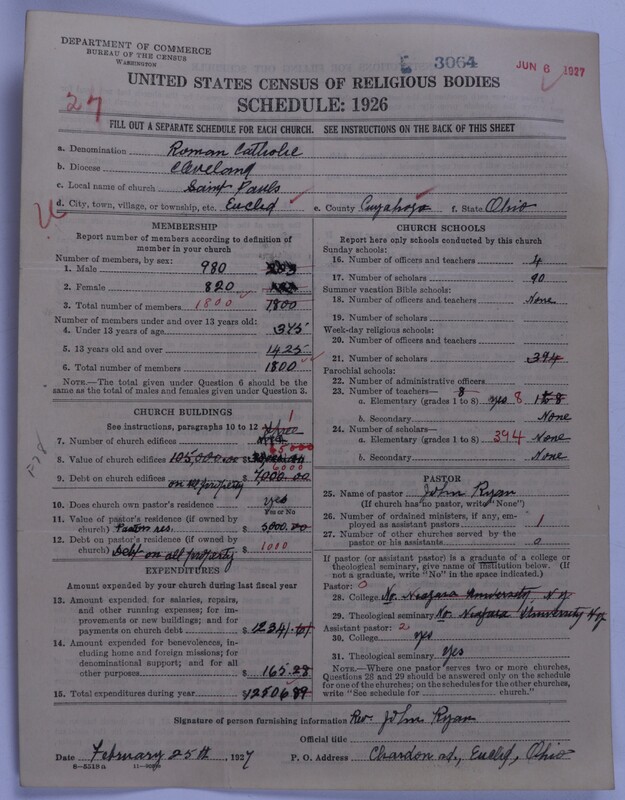 DEPARTMENT OF COMMERCE
BUREAU OF THE CENSUS
WASHINGTON
3064
JUN 6 1927
UNITED STATES CENSUS OF RELIGIOUS BODIES
SCHEDULE: 1926
27
FILL OUT A SEPARATE SCHEDULE FOR EACH CHURCH. SEE INSTRUCTIONS ON THE BACK OF THIS SHEET
a. Denomination Roman Catholic
b. Diocese Cleveland
c. Local name of church Saint Pauls
d. City, town, village, or township, etc. Euclid e. County Cuyahoga f. State Ohio
MEMBERSHIP
Report number of members according to definition of
member in your church
Number of members, by sex:
1. Male 980
2. Female 820
3. Total number of members 1800 1800
Number of members under and over 13 years old:
4. Under 13 years of age 375
5. 13 years old and over 1425
6. Total number of members 1800
NOTE.—The total given under Question 6 should be
the same as the total of males and females given under Question 3.
CHURCH BUILDINGS
See instructions, paragraphs 10 to 12
1
7. Number of church edifices
65000
8. Value of church edifices 105,000.00 $
6000
9. Debt on church edifices on all property $ 7000.00
10. Does church own pastor's residence? yes
Yes or No
11. Value of pastor's residence (if owned by
church) Pastors res. $ 5000.00
12. Debt on pastor's residence (if owned by
church) Debt on all property $ 1000
EXPENDITURES
Amount expended by your church during last fiscal year
13. Amount expended for salaries, repairs,
and other running expenses; for im-
provements or new buildings; and for
payments on church debt $ 12341.61
14. Amount expended for benevolences, in-
cluding home and foreign missions; for
denominational support; and for all
other purposes $ 165.28
15. Total expenditures during year $ 12506.89
CHURCH SCHOOLS
Report here only schools conducted by this church
Sunday schools:
16. Number of officers and teachers 4
17. Number of scholars 90
Summer vacation Bible schools:
18. Number of officers and teachers None
19. Number of scholars
Week-day religious schools:
20. Number of officers and teachers
21. Number of scholars 394
Parochial schools:
22. Number of administrative officers
23. Number of teachers— 8
a. Elementary (grades 1 to 8) yes 8
b. Secondary None
24. Number of scholars—
a. Elementary (grades 1 to 8) 394 None
b. Secondary None
PASTOR
25. Name of pastor John Ryan
(If church has no pastor, write "None")
26. Number of ordained ministers, if any, em-
ployed as assistant pastors 1
27. Number of other churches served by the
pastor or his assistants 0
If pastor (or assistant pastor) is a graduate of a college or
theological seminary, give name of institution below. (If
not a graduate, write "No" in the space indicated.)
Pastor: 0
28. College No. Niagara University, N.Y.
29. Theological seminary No. Niagara University N.Y.
Assistant pastor: 2
30. College yes
31. Theological seminary yes
NOTE.—Where one pastor serves two or more churches,
Questions 28 and 29 should be answered only on the schedule
for one of the churches; on the schedules for the other churches,
write "See schedule for church."
Signature of person furnishing information Rev. John Ryan
Official title
Date February 25th, 1927 P. O. Address Chardon rd., Euclid, Ohio
8—5519 a